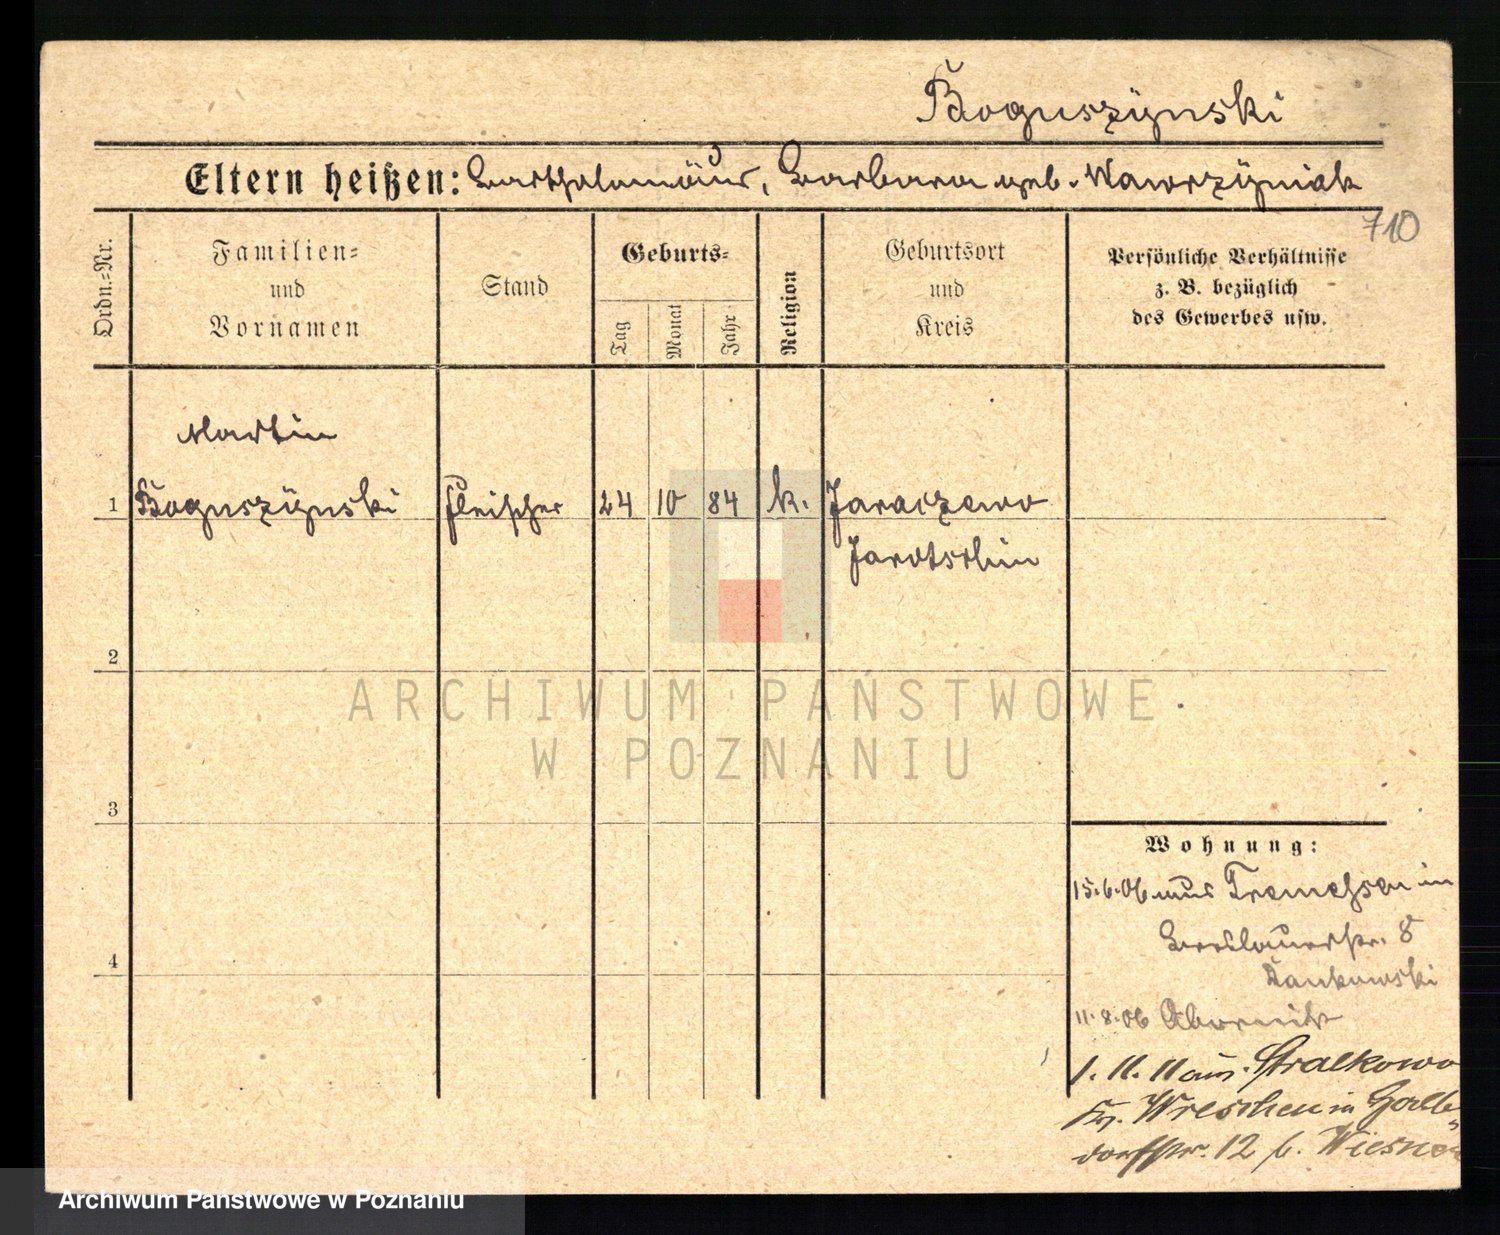 Boguszÿnski
Eltern heißen: Bartholomäus, Barbara geb. Wawrzÿniak
710
Ordn.-Nr.
Familien-
und
Vornamen
Stand
Geburts-
Tag
Monat
Jahr
Religion
Geburtsort
und
Kreis
Persönliche Verhältnisse
z. B. bezüglich
des Gewerbes usw.
Martin
1 Boguszÿnski Fleischer 24 10 84 k. Jaraczewo
Jarotschin
2
3
4
Wohnung:
15.6.06 aus Tremessen in
Breslauerstr. 8
Jankowski
11.8.06 Obornik
1. 11. 11 aus Stralkowo
Kr. Wreschen in
dorfstr. 12 b.
ARCHIWUM PAŃSTWOWE
W POZNANIU
Archiwum Państwowe w Poznaniu